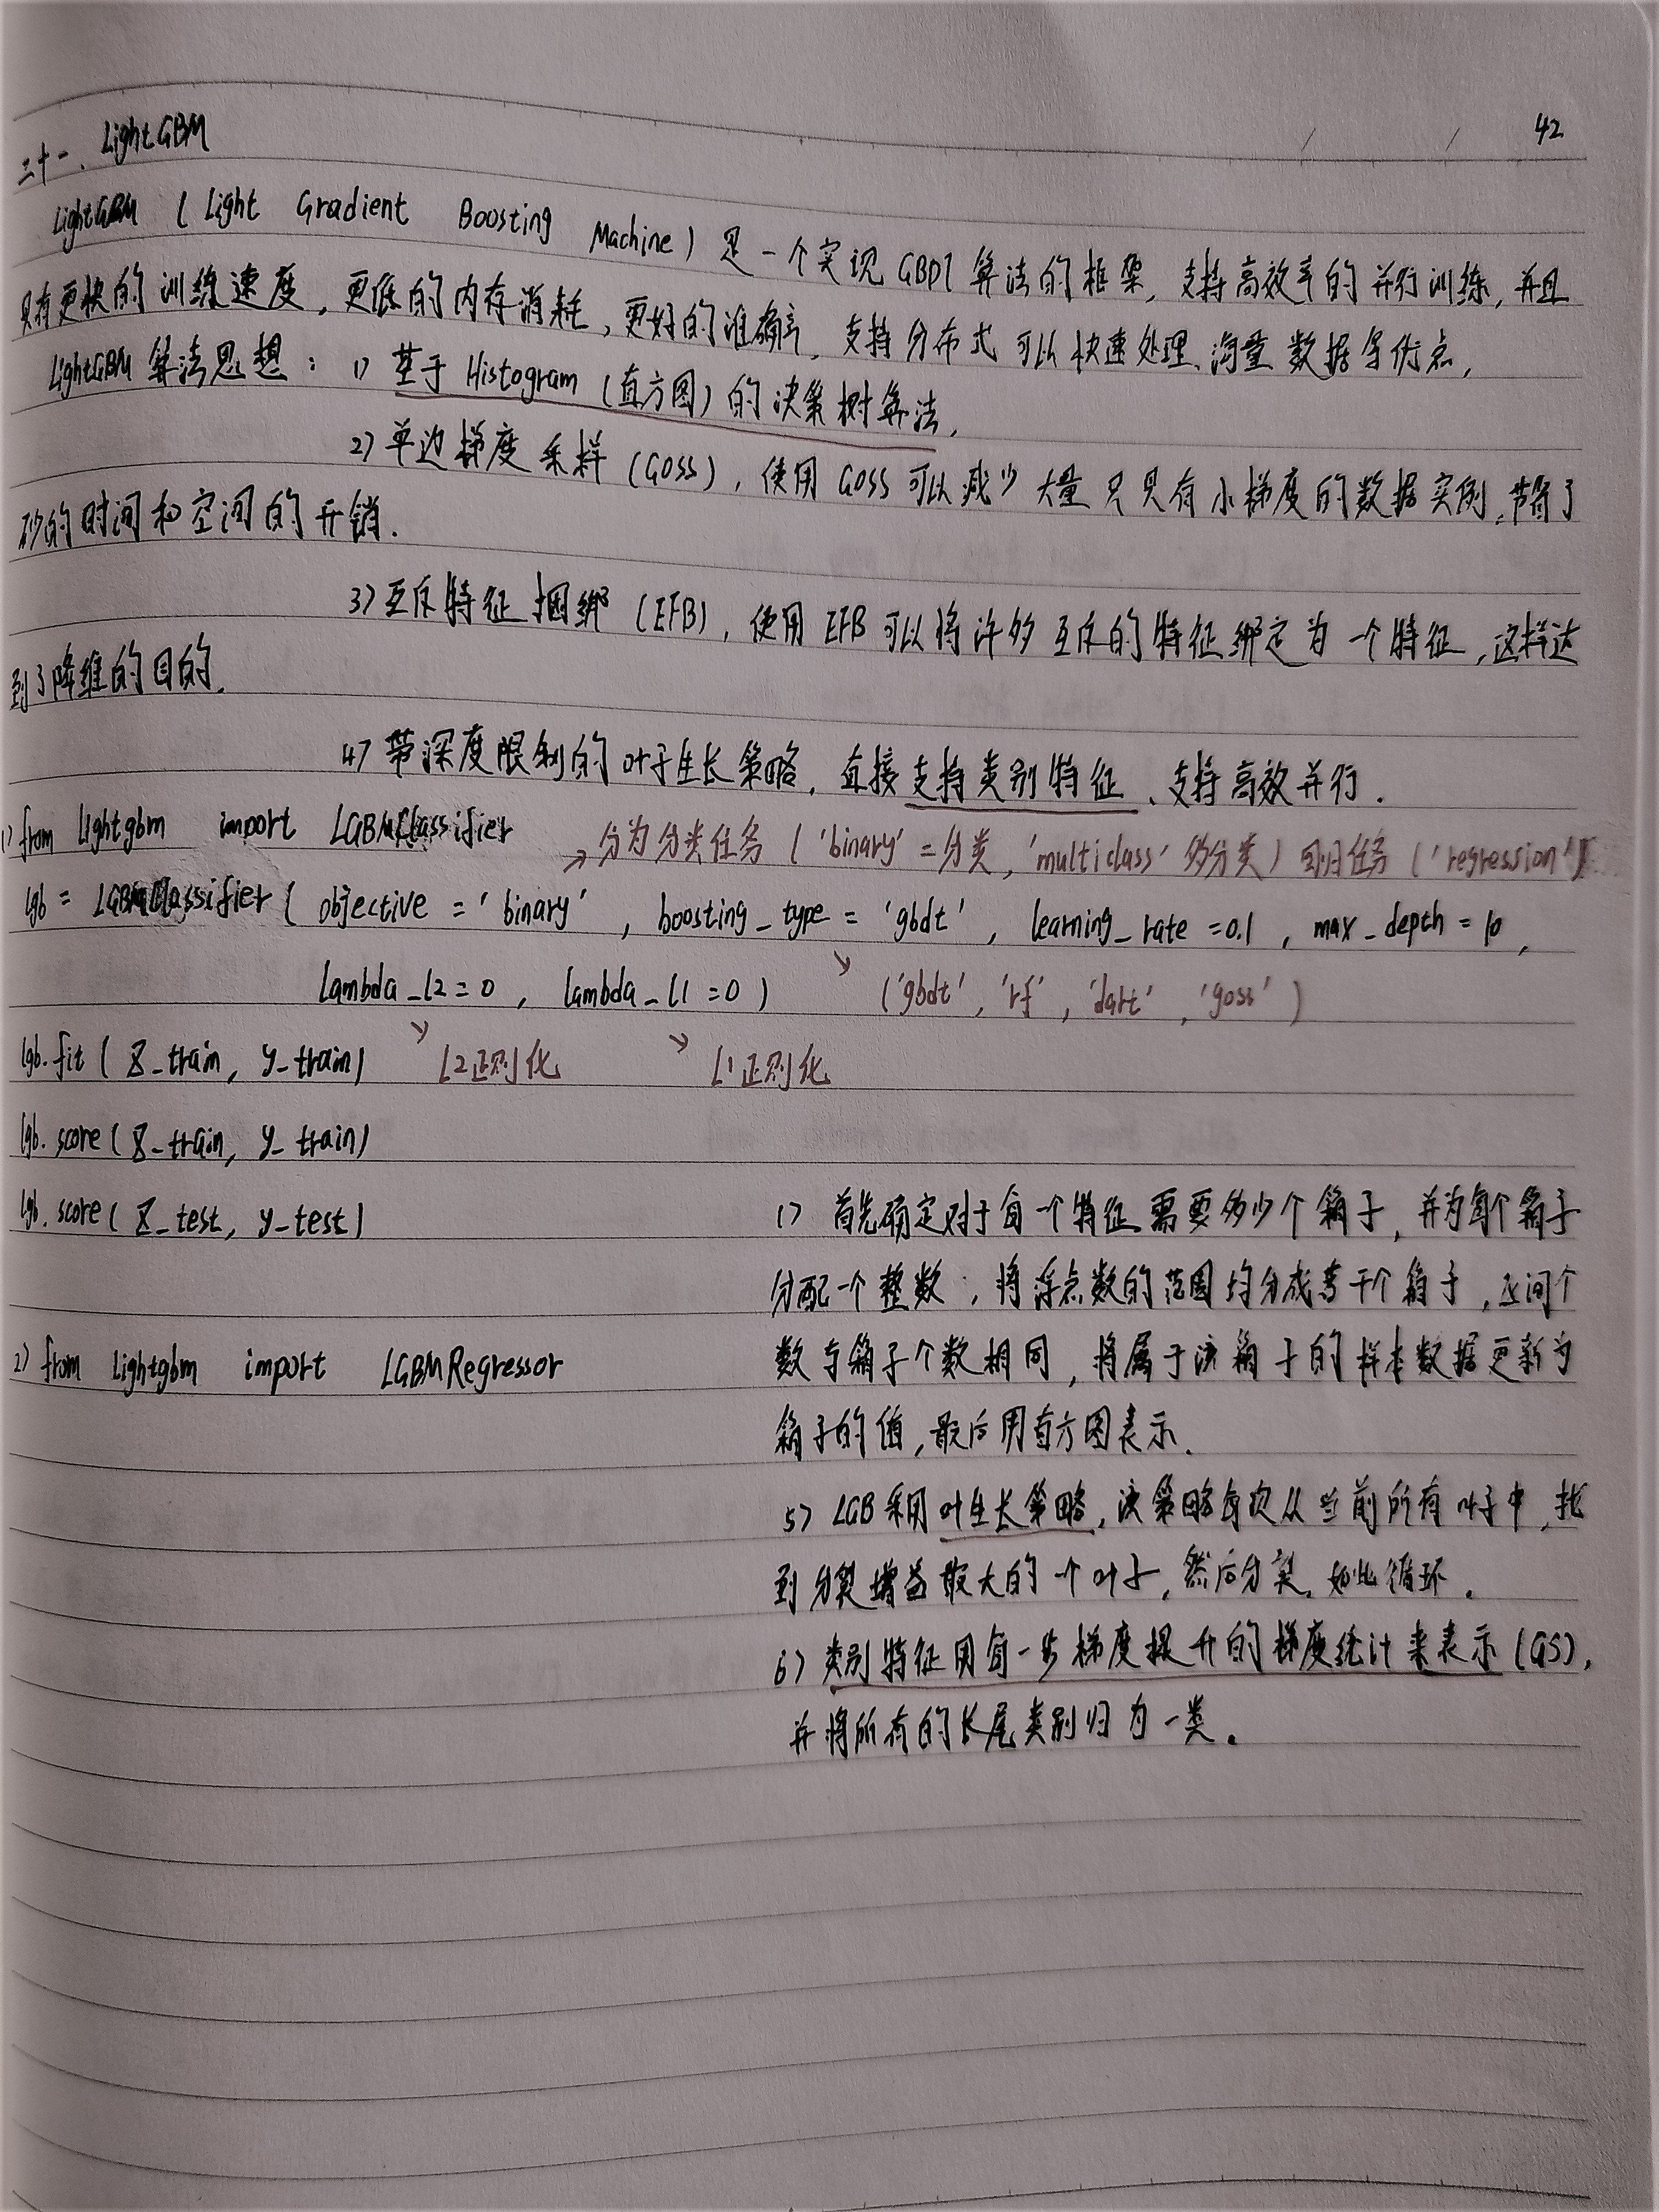 42
二十一、LightGBM
LightGBM (Light Gradient Boosting Machine) 是一个实现GBDT算法的框架,支持高效率的并行训练,并且
具有更快的训练速度,更低的内存消耗,更好的准确率,支持分布式可以快速处理海量数据等优点,
LightGBM算法思想:1) 基于Histogram(直方图)的决策树算法,
2) 单边梯度采样(GOSS),使用GOSS可以减少大量只具有小梯度的数据实例,节省了
的时间和空间的开销.
3) 互斥特征捆绑(EFB),使用EFB可以将许多互斥的特征绑定为一个特征,这样达
到了降维的目的.
4) 带深度限制的叶子生长策略,直接支持类别特征、支持高效并行.
1) from lightgbm import LGBMClassifier
→分为分类任务('binary'=分类,'multiclass'多分类)回归任务('regression')
lgb = LGBMClassifier( objective = 'binary' , boosting_type = 'gbdt' , learning_rate =0.1 , max_depth = 10 ,
lambda_l2=0 , lambda_l1=0 ) ↘ ('gbdt', 'rf', 'dart', 'goss')
lgb.fit( X_train, y_train) ↘ L2正则化 ↘ L1正则化
lgb.score( X_train, y_train)
lgb.score( X_test, y_test)
2) from lightgbm import LGBMRegressor
1) 首先确定对于每一个特征需要多少个箱子,并为每个箱子
分配一个整数;将浮点数的范围均分成若干个箱子,区间个
数与箱子个数相同,将属于该箱子的样本数据更新为
箱子的值,最后用直方图表示.
5) LGB采用叶生长策略,该策略每次从当前所有叶子中,找
到分裂增益最大的一个叶子,然后分裂,如此循环.
6) 类别特征用每一步梯度提升的梯度统计来表示(GS),
并将所有的长尾类别归为一类。